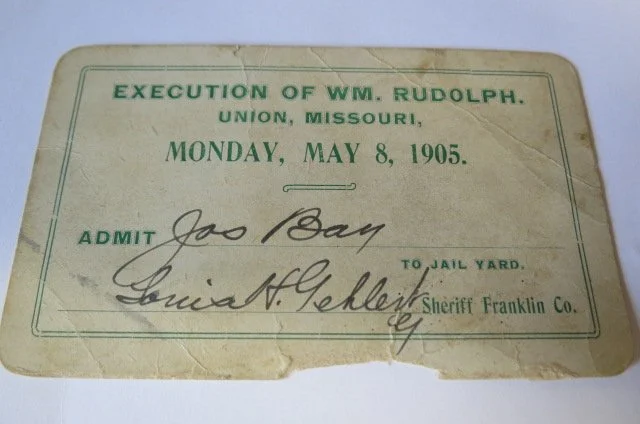 EXECUTION OF WM. RUDOLPH.
UNION, MISSOURI,
MONDAY, MAY 8, 1905.
ADMIT Jos Bay
TO JAIL YARD.
Louis H. Gehlert Sheriff Franklin Co.